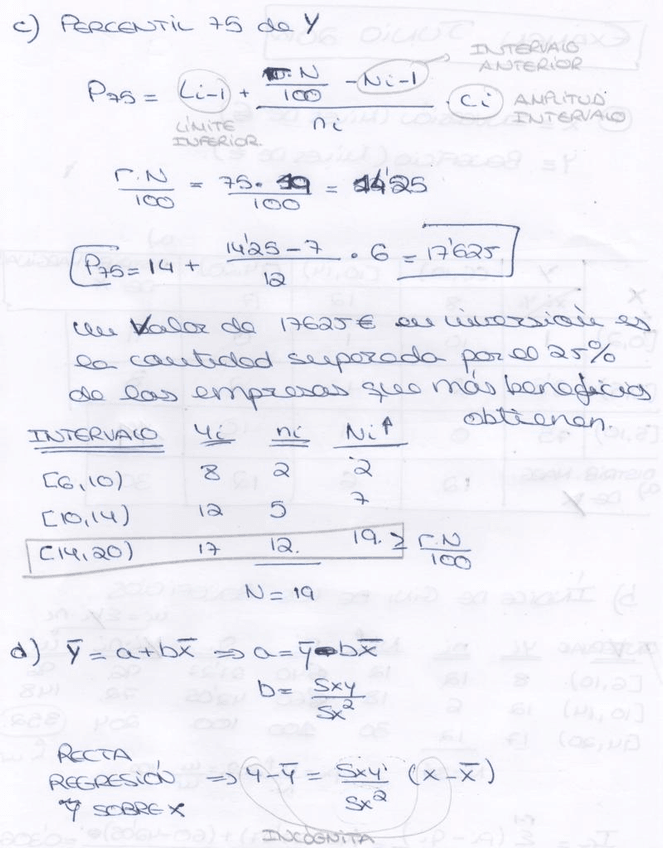 c) PERCENTIL 75 de Y
INTERVALO
ANTERIOR
P75 = Li-1 + (r.N/100 - Ni-1)/ni . Ci
AMPLITUD
INTERVALO
LÍMITE
INFERIOR.
r.N/100 = 75.19/100 = 14'25
P75 = 14 + (14'25 - 7)/12 . 6 = 17'625
un valor de 17625€ en inversión es
la cantidad superada por el 25%
de las empresas que más beneficios
obtienen.
INTERVALO yi ni Ni↑
[6,10) 8 2 2
[10,14) 12 5 7
[14,20) 17 12. 19. ≥ r.N/100
N = 19
d) y̅ = a + bx̅ ⇒ a = y̅ - bx̅
b = Sxy/Sx²
RECTA
REGRESIÓN ⇒ y - y̅ = Sxy/Sx² (x - x̅)
Y SOBRE X
INCÓGNITA